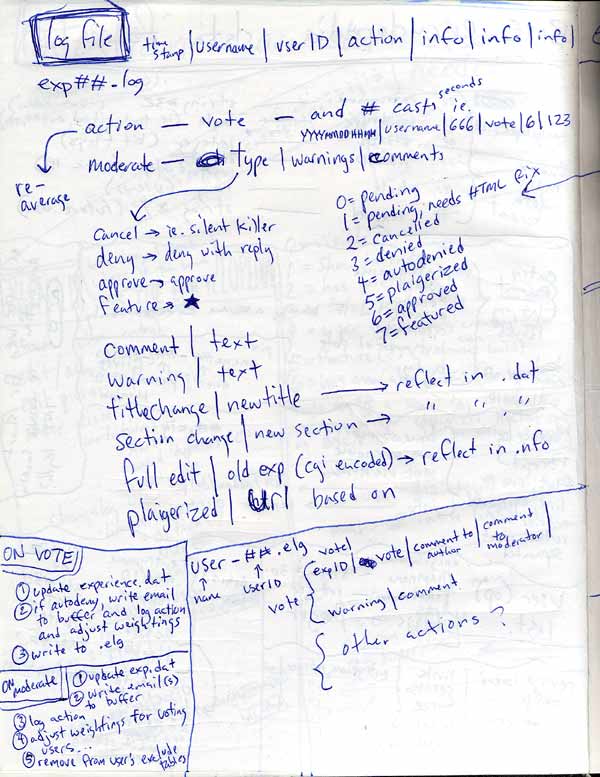 log file
time stamp | username | userID | action | info | info | info |
exp##.log
action — vote — and # casts seconds ie.
YYYYMMDDHHMM | username | 666 | vote | 6 | 123
re-average
moderate — type | warnings | comments
cancel → ie. silent killer
deny → deny with reply
approve → approve
feature → ★
0 = pending
1 = pending, needs HTML fix
2 = cancelled
3 = denied
4 = autodenied
5 = plaigerized
6 = approved
7 = featured
comment | text
warning | text
titlechange | newtitle → reflect in .dat
section change | new section → " " "
full edit | old exp (cgi encoded) → reflect in .nfo
plaigerized | url based on
ON VOTE
① update experience.dat
② if autodeny, write email
to buffer and log action
and adjust weightings
③ write to .elg
ON moderate
① update exp.dat
② write email(s)
to buffer
③ log action
④ adjust weightings for voting
users...
⑤ remove from user's exclude
tables
user - ##.elg
↑ name
↑ userID
vote {
vote |
expID | vote | comment to author | comment to moderator |
warning | comment
{ other actions ?